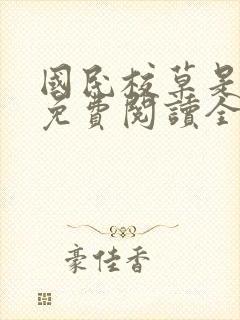 國民校草是
免費閱讀全
豪佳香